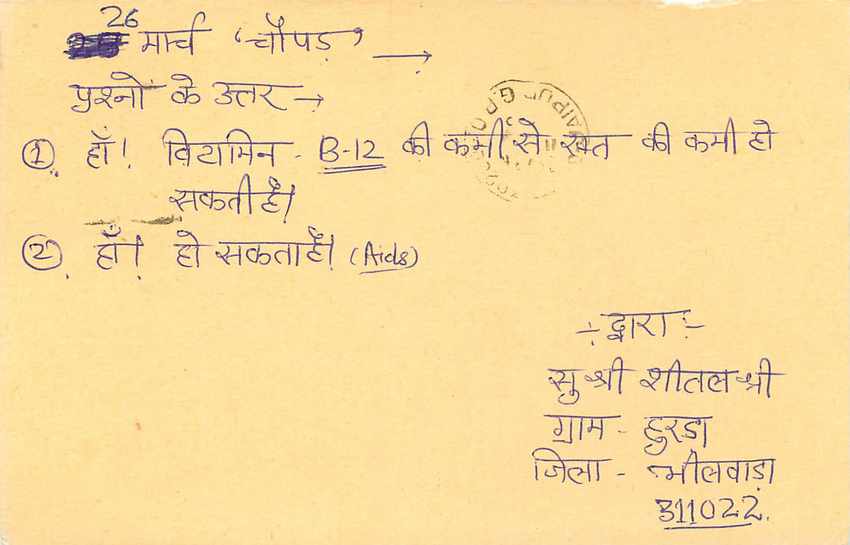 26
मार्च 'चौपड़' →
प्रश्नों के उत्तर →
① हाँ! विटामिन - B-12 की कमी से रक्त की कमी हो
सकती है।
② हाँ! हो सकता है। (Aids)
-: द्वारा :-
सुश्री शीतल श्री
ग्राम - हुरडा
जिला - भीलवाड़ा
311022.
JAIPUR G.P.O.